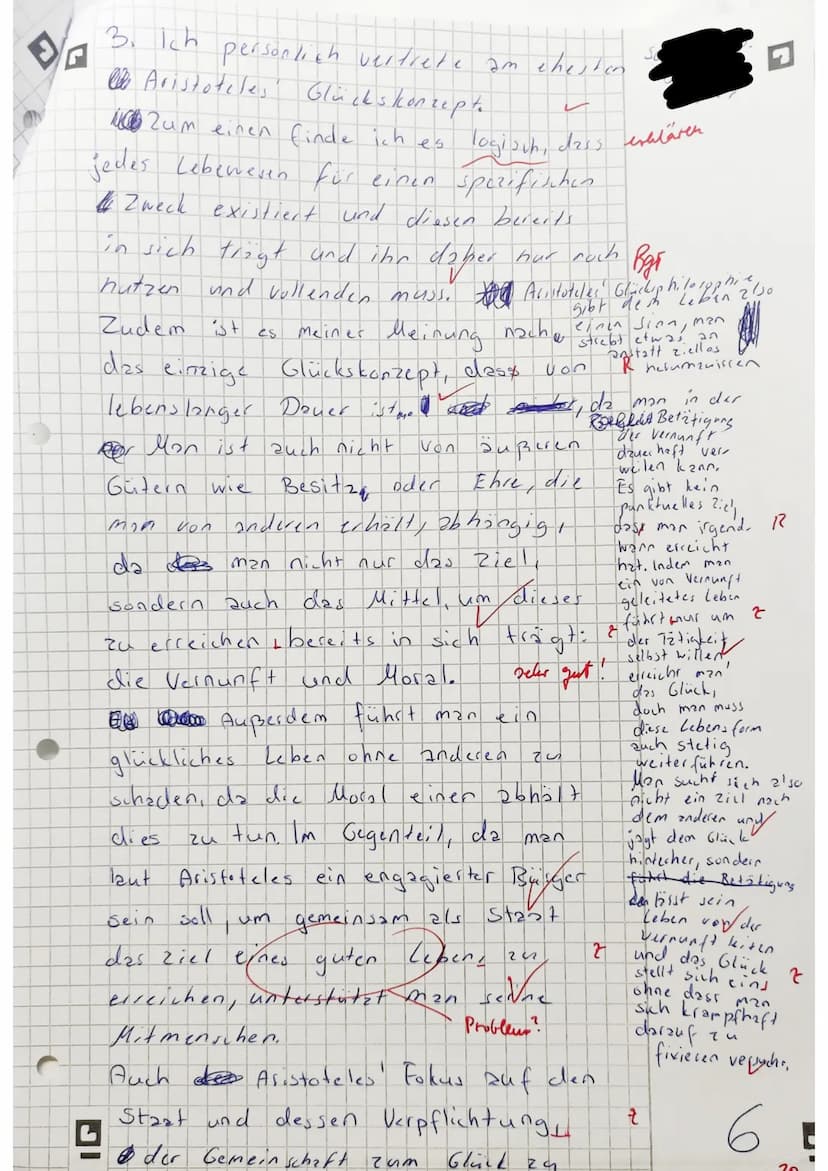 3. Ich persönlich vertrete am ehesten
Aristoteles' Glückskonzept.
Zum einen finde ich es logisch, dass
erklären
jedes Lebewesen für einen spezifischen
Zweck existiert und diesen bereits
in sich trägt und ihn daher nur noch
Bgr
nutzen und vollenden muss.
Aristoteles' Glücksphilosophie
gibt dem Leben also
einen Sinn, man
strebt etwas an
anstatt ziellos
herumzuirren
Zudem ist es meiner Meinung nach
das einzige Glückskonzept, dass von
R
lebenslanger Dauer ist, da man in der
Betätigung
der Vernunft
dauerhaft ver-
weilen kann.
Es gibt kein
punktuelles Ziel,
dass man irgend-
R
wann erreicht
hat. Indem man
ein von Vernunft
geleitetes Leben
führt nur um
z
der Tätigkeit
selbst willen
erreicht man
das Glück,
doch man muss
diese Lebensform
auch stetig
weiterführen.
Man sucht sich also
nicht ein Ziel nach
dem anderen und
jagt dem Glück
hinterher, sondern
führt die Betätigung
lässt sein
Leben von der
Vernunft leiten
und das Glück
stellt sich ein,
z
ohne dass man
sich krampfhaft
darauf zu
fixieren versucht.
Man ist auch nicht von äußeren
Gütern wie Besitz, oder Ehre, die
man von anderen erhält, abhängig,
da man nicht nur das Ziel,
sondern auch das Mittel, um dieses
zu erreichen, bereits in sich trägt:
z
die Vernunft und Moral.
sehr gut!
Außerdem führt man ein
glückliches Leben ohne anderen zu
schaden, da die Moral einer abhält
dies zu tun. Im Gegenteil, da man
laut Aristoteles ein engagierter Bürger
sein soll, um gemeinsam als Staat
das Ziel eines guten Lebens zu
z
erreichen, unterstützt man seine
Problem?
Mitmenschen.
Auch Aristoteles' Fokus auf den
Staat und dessen Verpflichtung,
z
der Gemeinschaft zum Glück zu
6